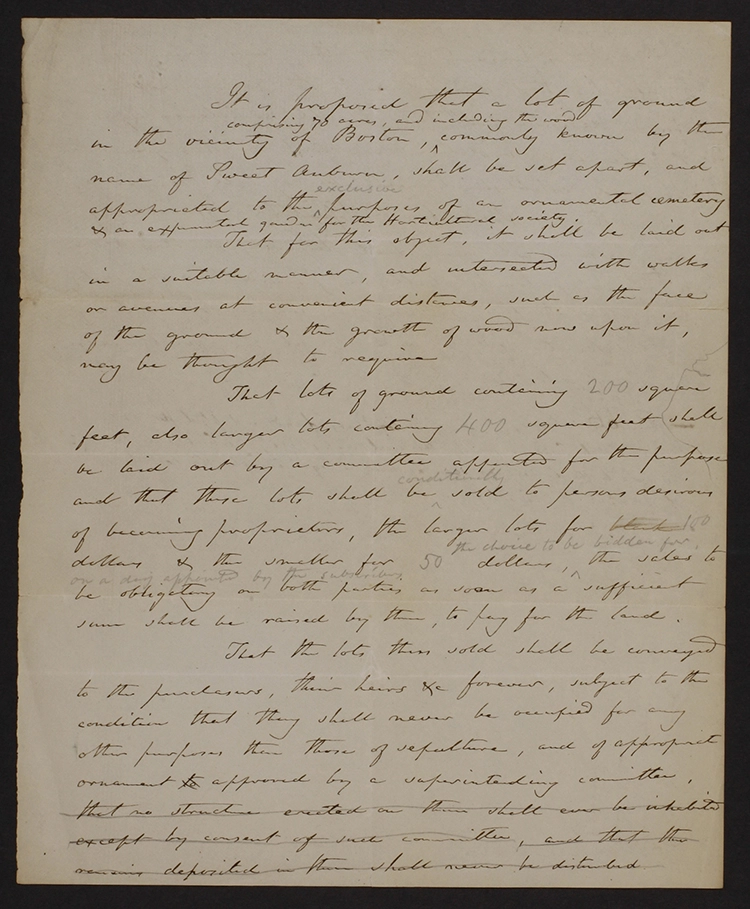 It is proposed that a lot of ground
comprising 70 acres, and including the wood
in the vicinity of Boston, commonly known by the
name of Sweet Auburn, shall be set apart, and
exclusive
appropriated to the purposes of an ornamental cemetery
& an experimental garden for the Horticultural society.
That for this object, it shall be laid out
in a suitable manner, and intersected with walks
or avenues at convenient distances, such as the face
of the ground & the growth of wood now upon it,
may be thought to require
That lots of ground containing 200 square
feet, also larger lots containing 400 square feet shall
be laid out by a committee appointed for the purpose
conditionally
and that these lots shall be sold to persons desirous
of becoming proprietors, the larger lots for blank 100
the choice to be bidden for
dollars & the smaller for 50 dollars, the sales to
on a day appointed by the subscribers.
be obligatory on both parties as soon as a sufficient
sum shall be raised by them, to pay for the land.
That the lots thus sold shall be conveyed
to the purchasers, their heirs &c forever, subject to the
condition that they shall never be occupied for any
other purposes than those of sepulture, and of appropriate
ornament to approved by a superintending committee,
that no structure erected on them shall ever be inhabited
except by consent of such committee, and that the
remains deposited in them shall never be disturbed